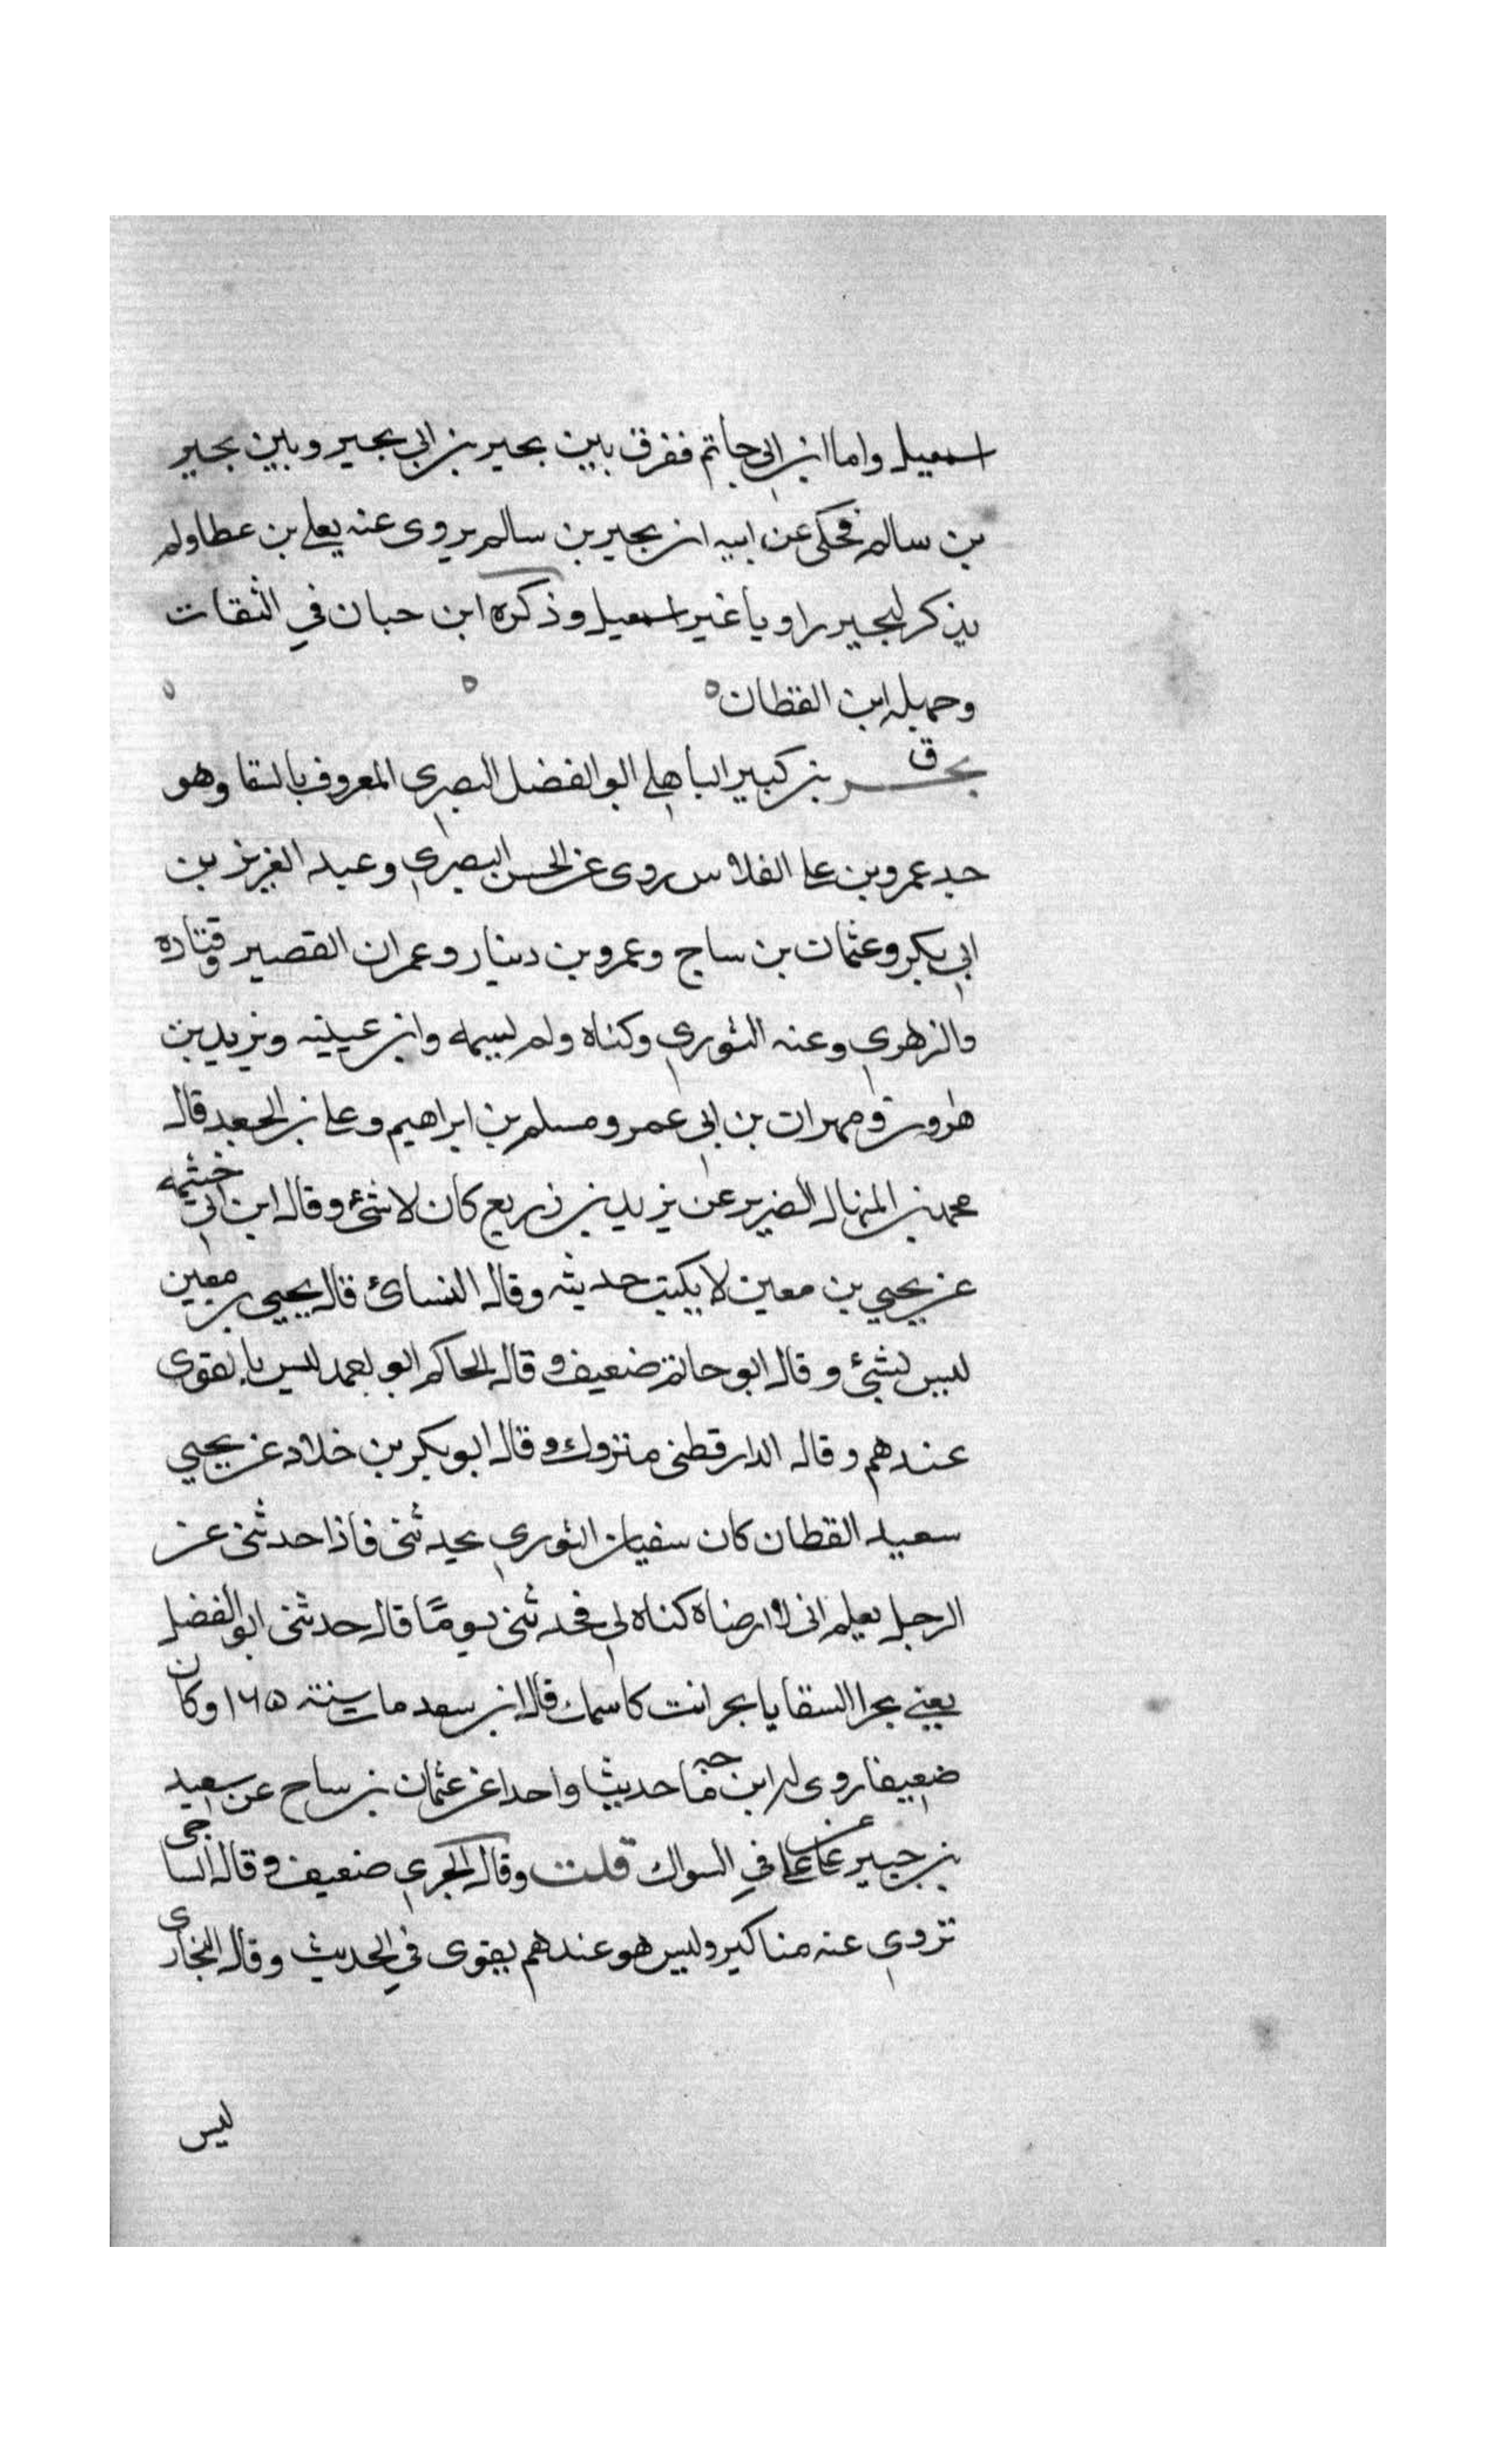 اسمعيل واما ابن ابي حاتم ففرق بين بجير بن ابي بجير وبين بجير
بن سالم فحكى عن ابيه ان بجير بن سالم يروى عنه يعلى بن عطا ولم
يذكر لبجير راويا غير اسمعيل وذكره ابن حبان في الثقات
وجهله ابن القطان
ق
بحر بن كبير الباهلي ابو الفضل البصرى المعروف بالسقا وهو
جد عمرو بن على الفلاس روى عن الحسن البصرى وعبد العزيز بن
ابي بكر وعثمان بن ساج وعمرو بن دينار وعمران القصير وقتاده
والزهرى وعنه الثوري وكناه ولم يسمه وابن عيينه ويزيد بن
هارون ومهران بن ابي عمر ومسلم بن ابراهيم وعلى بن الجعد قال
محمد بن المنهال الضرير عن يزيد بن زريع كان لا شئ وقال ابن ابي خثيمه
عن يحيي بن معين لا يكتب حديثه وقال النسائ قال يحيي بن معين
ليس بشئ وقال ابو حاتم ضعيف وقال الحاكم ابو احمد ليس بالقوى
عندهم وقال الدارقطنى متروك وقال ابو بكر بن خلاد عن يحيي
سعيد القطان كان سفيان الثوري يحدثنى فاذا حدثنى عن
الرجل يعلم انى لا ارضاه كناه لي فحدثنى يومًا قال حدثنى ابو الفضل
يعني بحرا السقا يا بحر انت كاسمك قال ابن سعد مات سنة ١٦٥ وكان
ضعيفا روى له ابن ماجه حديثا واحدا عن عثمان بن ساج عن سعيد
بن جبير عن على في السواك قلت وقال الحربى ضعيف وقال الساجى
تروى عنه مناكير وليس هو عندهم بقوى في الحديث وقال البخارى
ليس